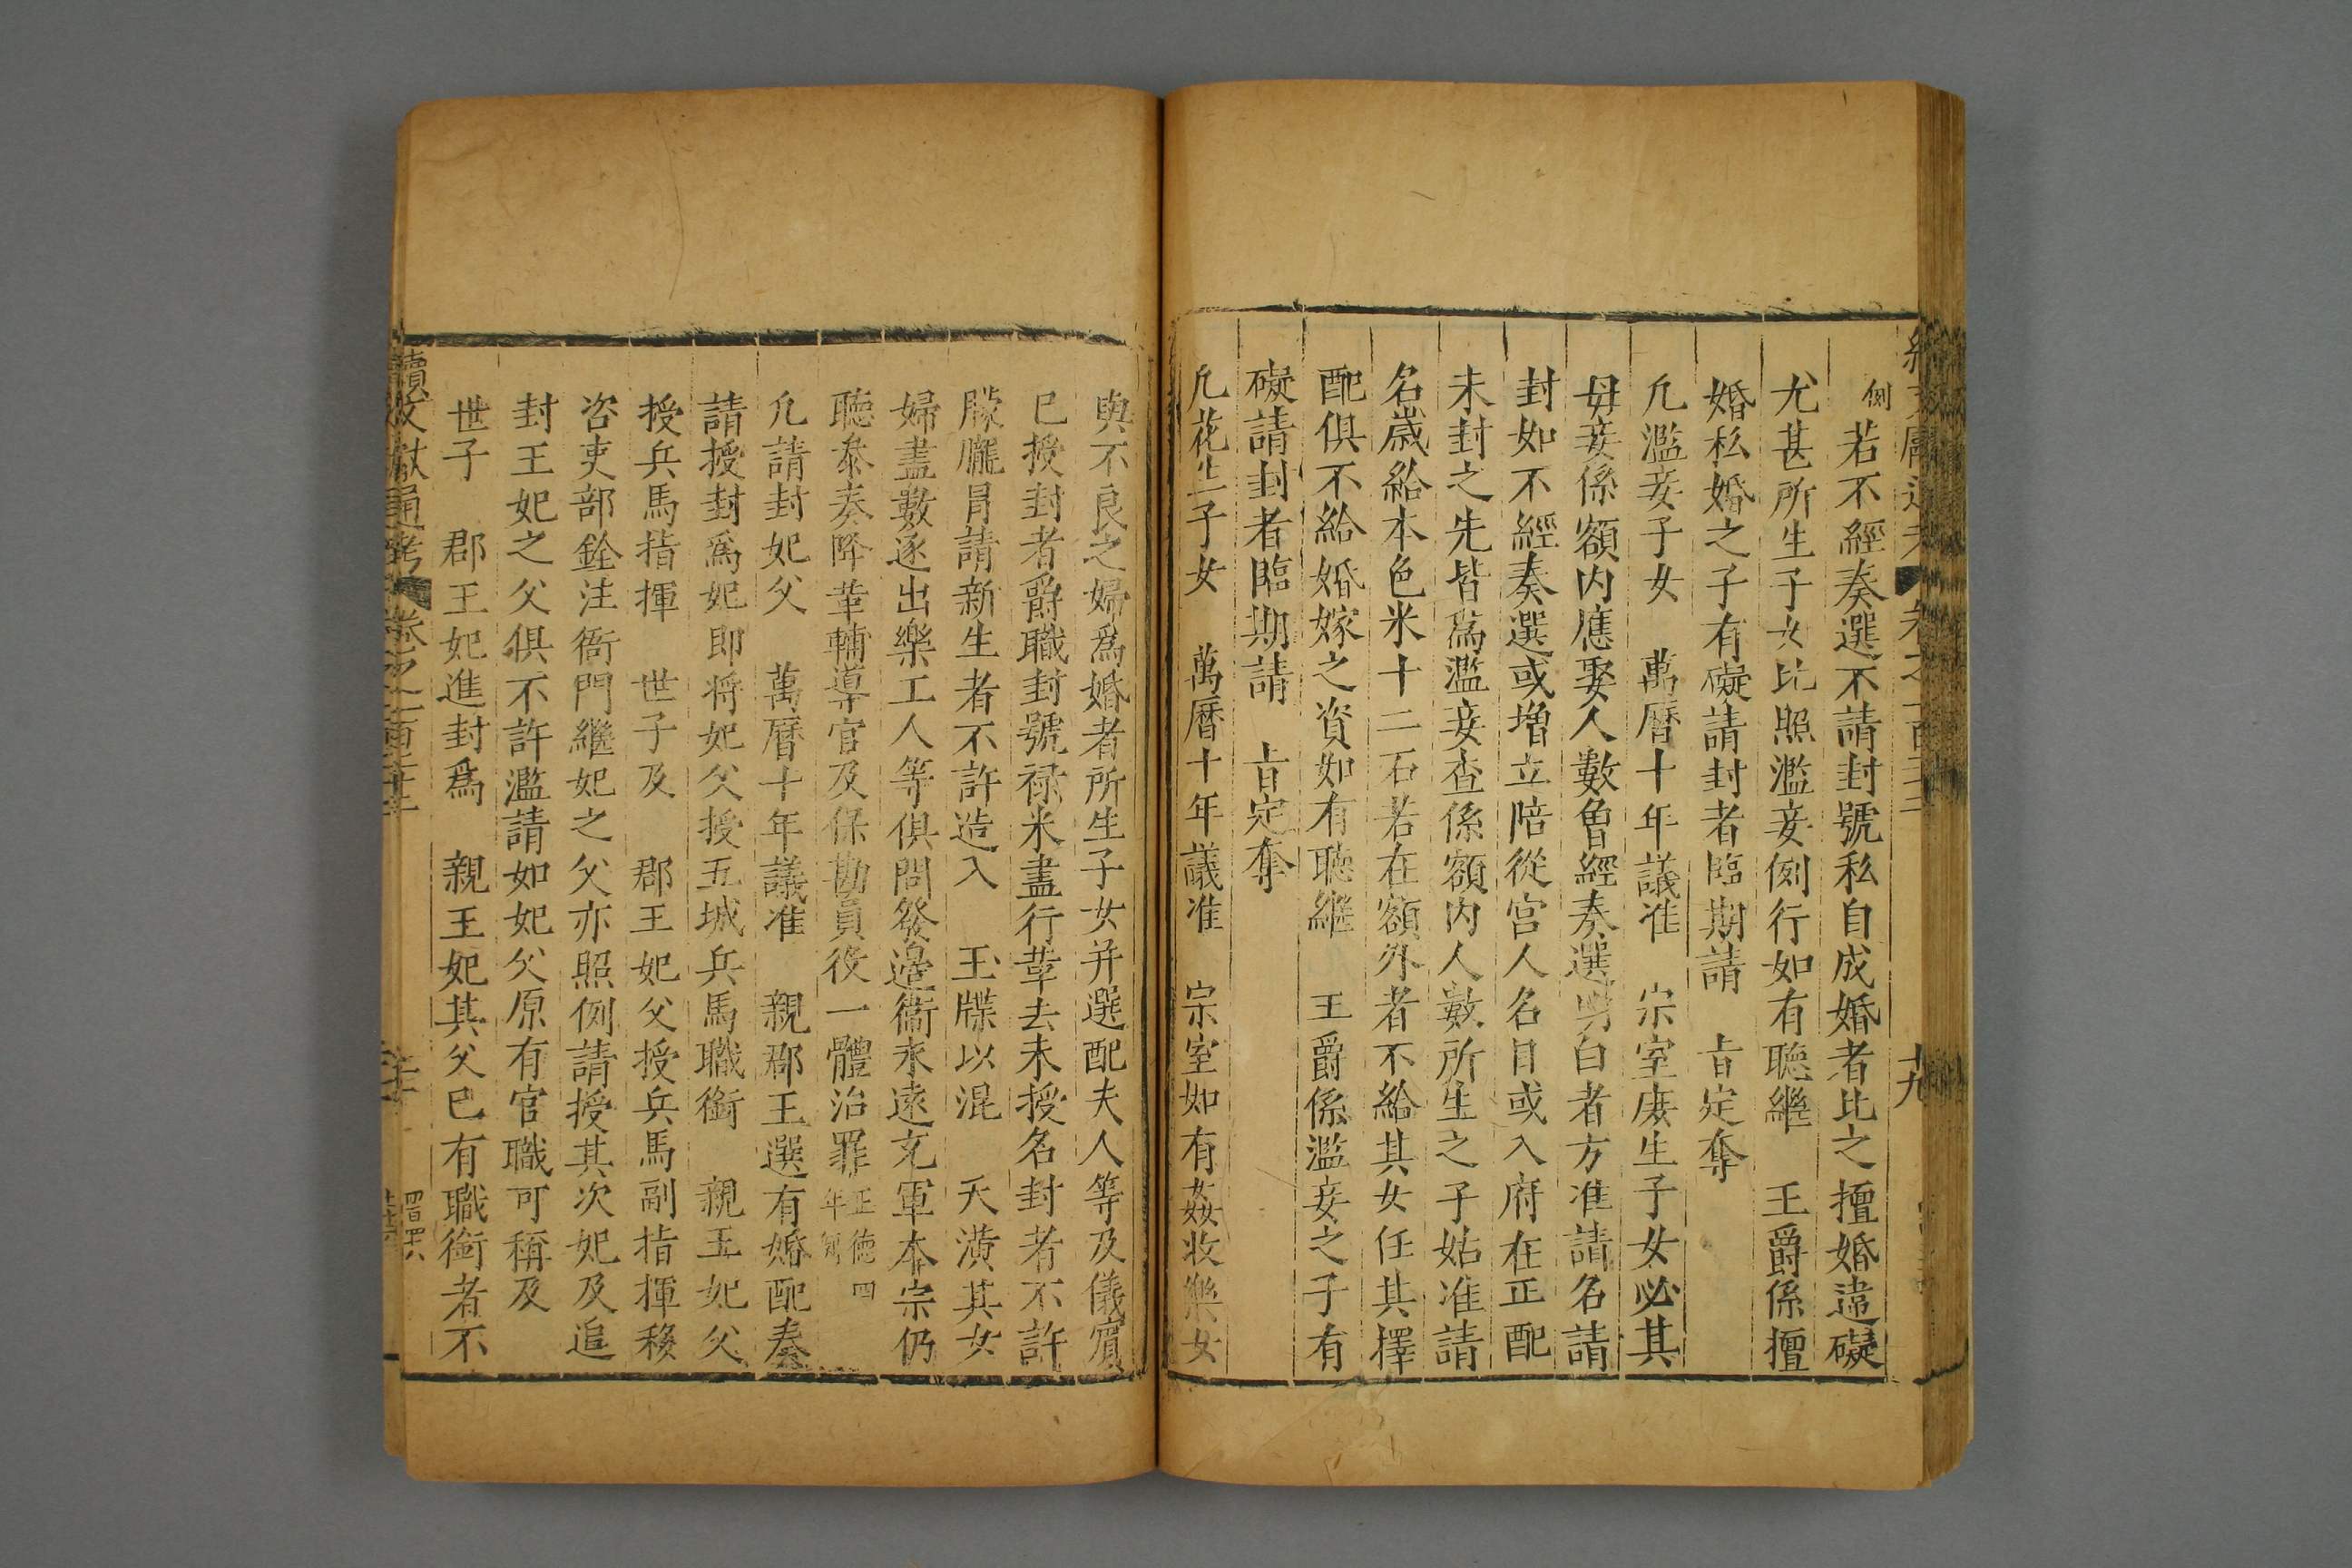 例若不經奏選不請封號私自成婚者比之擅婚違礙
尤甚所生子女比照濫妾例行如有聽繼　王爵係擅
婚私婚之子有礙請封者臨期請　㫖定奪
凡濫妾子女　萬曆十年議准　宗室庶生子女必其
母妾係額内應娶人數曾經奏選明白者方准請名請
封如不經奏選或增立陪從宫人名目或入府在正配
未封之先皆爲濫妾查係額内人數所生之子姑准請
名歲給本色米十二石若在額外者不給其女任其擇
配俱不給婚嫁之資如有聽繼　王爵係濫妾之子有
礙請封者臨期請　㫖定奪
凡花生子女　萬曆十年議准　宗室如有姦收樂女
與不良之婦爲婚者所生子女并選配夫人等及儀賓
已授封者爵職封號禄米盡行革去未授名封者不許
朦朧冒請新生者不許造入　玉牒以混　天潢其女
婦盡數逐出樂工人等俱問發邉衛永遠充軍本宗仍
聽叅奏降革輔導官及保勘員役一體治罪正德四年例
凡請封妃父　萬曆十年議准　親郡王選有婚配奏
請授封爲妃即將妃父授五城兵馬職銜　親王妃父
授兵馬指揮　世子及　郡王妃父授兵馬副指揮移
咨吏部銓注衙門繼妃之父亦照例請授其次妃及追
封王妃之父俱不許濫請如妃父原有官職可稱及
世子　郡王妃進封爲　親王妃其父已有職銜者不
續文獻通考　卷之二百三